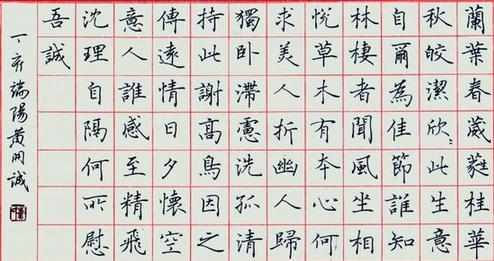 蘭葉春葳蕤桂華
秋皎潔欣〻此生意
自爾為佳節誰知
林棲者聞風坐相
悅草木有本心何
求美人折幽人歸
獨卧滯慮洗孤清
持此謝高鳥因之
傳遠情日夕懷空
意人誰感至精飛
沈理自隔何所慰
吾誠
丁亥端陽黃同誠